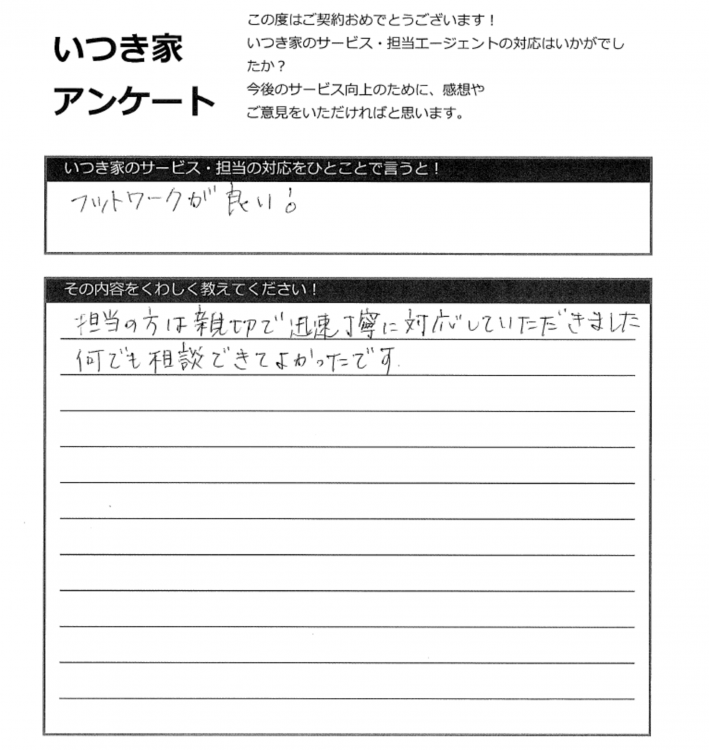 いつき家
アンケート
この度はご契約おめでとうございます！
いつき家のサービス・担当エージェントの対応はいかがでし
たか？
今後のサービス向上のために、感想や
ご意見をいただければと思います。
いつき家のサービス・担当の対応をひとことで言うと！
フットワークが良い！
その内容をくわしく教えてください！
担当の方は親切で迅速丁寧に対応していただきました
何でも相談できてよかったです.